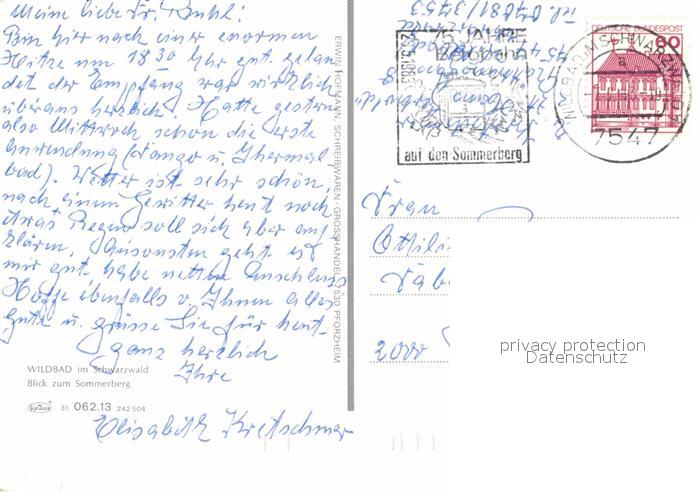 Meine liebe Fr. Buhl!
Bin hier nach einer enormen
Hitze um 1830 Uhr gut gelan
det der Empfang war wirklich
überaus herzlich. Hatte gestern
also Mittwoch schon die erste
Anwendung (Fango u. Thermal
bad). Wetter ist sehr schön,
nach einem Gewitter heut noch
etwas Regen soll sich aber auf
klären. Ansonsten geht es
mir gut. habe netten Anschluss
Hoffe ebenfalls v. Ihnen alles
gute u. grüsse Sie für heut
ganz herzlich
Ihre
Elisabeth Kretschmer
WILDBAD im Schwarzwald
Blick zum Sommerberg
Krüger 31 062.13 242 504
ERWIN HOFMANN, SCHREIBWAREN-GROSSHANDEL, 7530 PFORZHEIM
Tel. 07081/3453
DEUTSCHE BUNDESPOST
60
WILDBAD IM SCHWARZWALD
a
7547
auf den Sommerberg
Frau
2000
privacy protection
Datenschutz